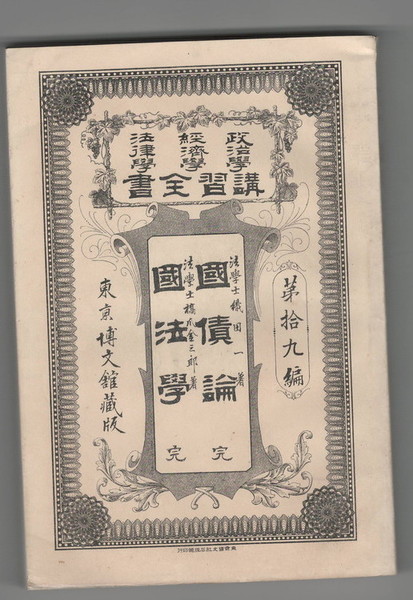 政治學
經濟學
法律學
講習全書
第拾九編
法學士織田一著
國債論 完
法學士橋爪金三郎著
國法學 完
東京博文館藏版